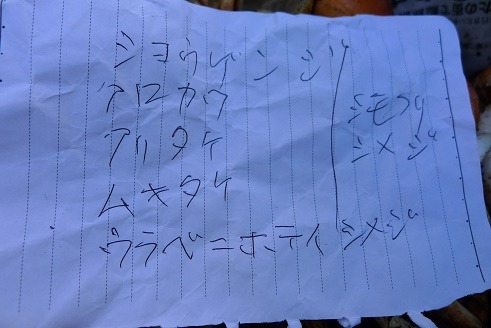 ショウゲンジ
クロカワ
アリタケ
ムキタケ
ウラベニホテイシメジ
シモフリ
シメジ